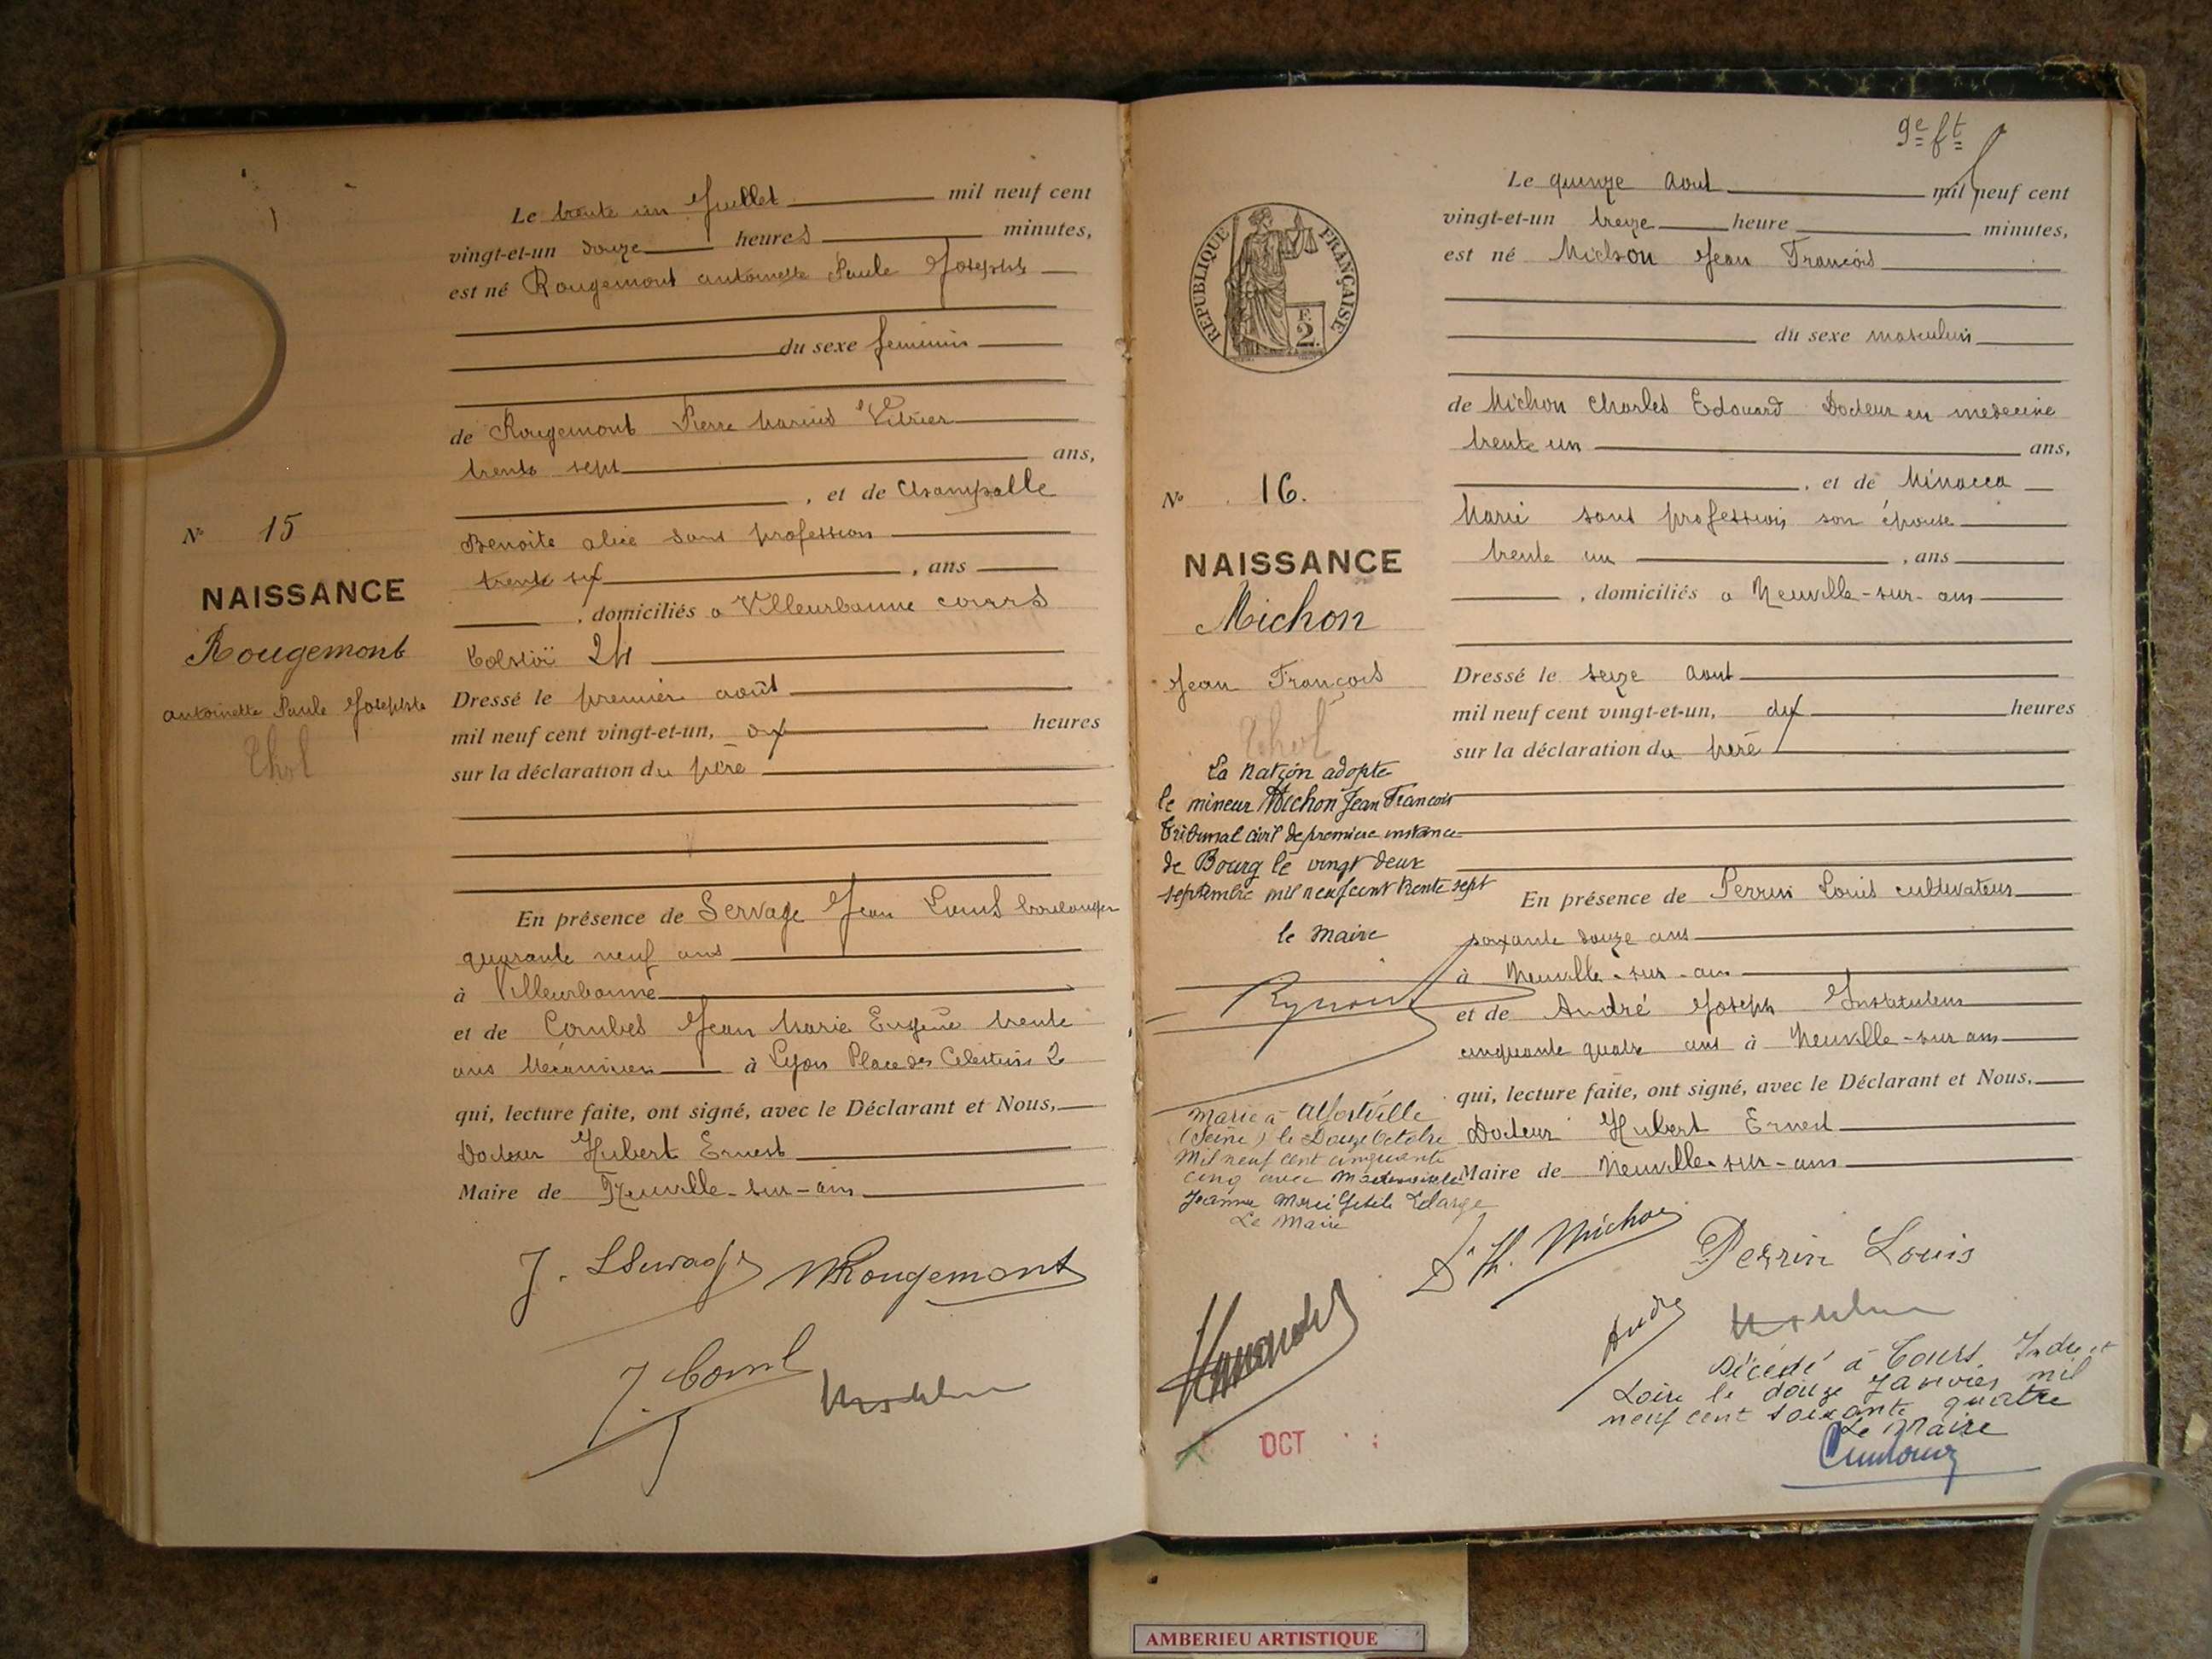 Le trente un Juillet mil neuf cent
vingt-et-un douze heures minutes,
est né Rougemont antoinette Paule Josephte
du sexe feminin
de Rougemont Pierre Marius Vitrier
trente sept ans,
, et de Champalle
Benoite alice sans profession
trente six , ans
, domiciliés a Villeurbanne cours
Tolstoï 24
Dressé le premier août
mil neuf cent vingt-et-un, dix heures
sur la déclaration du père
N° 15
NAISSANCE
Rougemont
antoinette Paule Josephte
Thol
En présence de Servage Jean Louis boulanger
quarante neuf ans
à Villeurbanne
et de Combes Jean Marie Eugène trente
ans Mecanicien à Lyon Place des Celestins 2
qui, lecture faite, ont signé, avec le Déclarant et Nous,
Docteur Hubert Ernest
Maire de Neuville-sur-ain
J. L Servage MRougemont
J. Comb
9e ft
RÉPUBLIQUE FRANÇAISE
F.
2.
Le quinze Aout mil neuf cent
vingt-et-un treize heure minutes,
est né Michon Jean François
du sexe masculin
de Michon Charles Edouard Docteur en medecine
trente un ans,
, et de Minacca
Marie sans profession son épouse
trente un , ans
, domiciliés a Neuville-sur-ain
Dressé le seize Aout
mil neuf cent vingt-et-un, dix heures
sur la déclaration du père
N° 16.
NAISSANCE
Michon
Jean François
Thol
La Nation adopte
le mineur Michon Jean François
Tribunal civil de premiere instance
de Bourg le vingt deux
septembre mil neuf cent trente sept
le Maire
En présence de Perrin Louis cultivateur
soixante douze ans
à Neuville-sur-ain
et de André Joseph Instituteur
cinquante quatre ans à Neuville-sur ain
qui, lecture faite, ont signé, avec le Déclarant et Nous,
Docteur Hubert Ernest
Maire de Neuville-sur-ain
Marie à Alfortville
(Seine) le Douze Octobre
Mil neuf cent cinquante
cinq avec Mademoiselle
Jeanne Marie
Le Maire
Michon Perrin Louis
André
Décédé à Tours Indre et
Loire le douze Janvier mil
neuf cent soixante quatre
Le Maire
OCT
AMBERIEU ARTISTIQUE